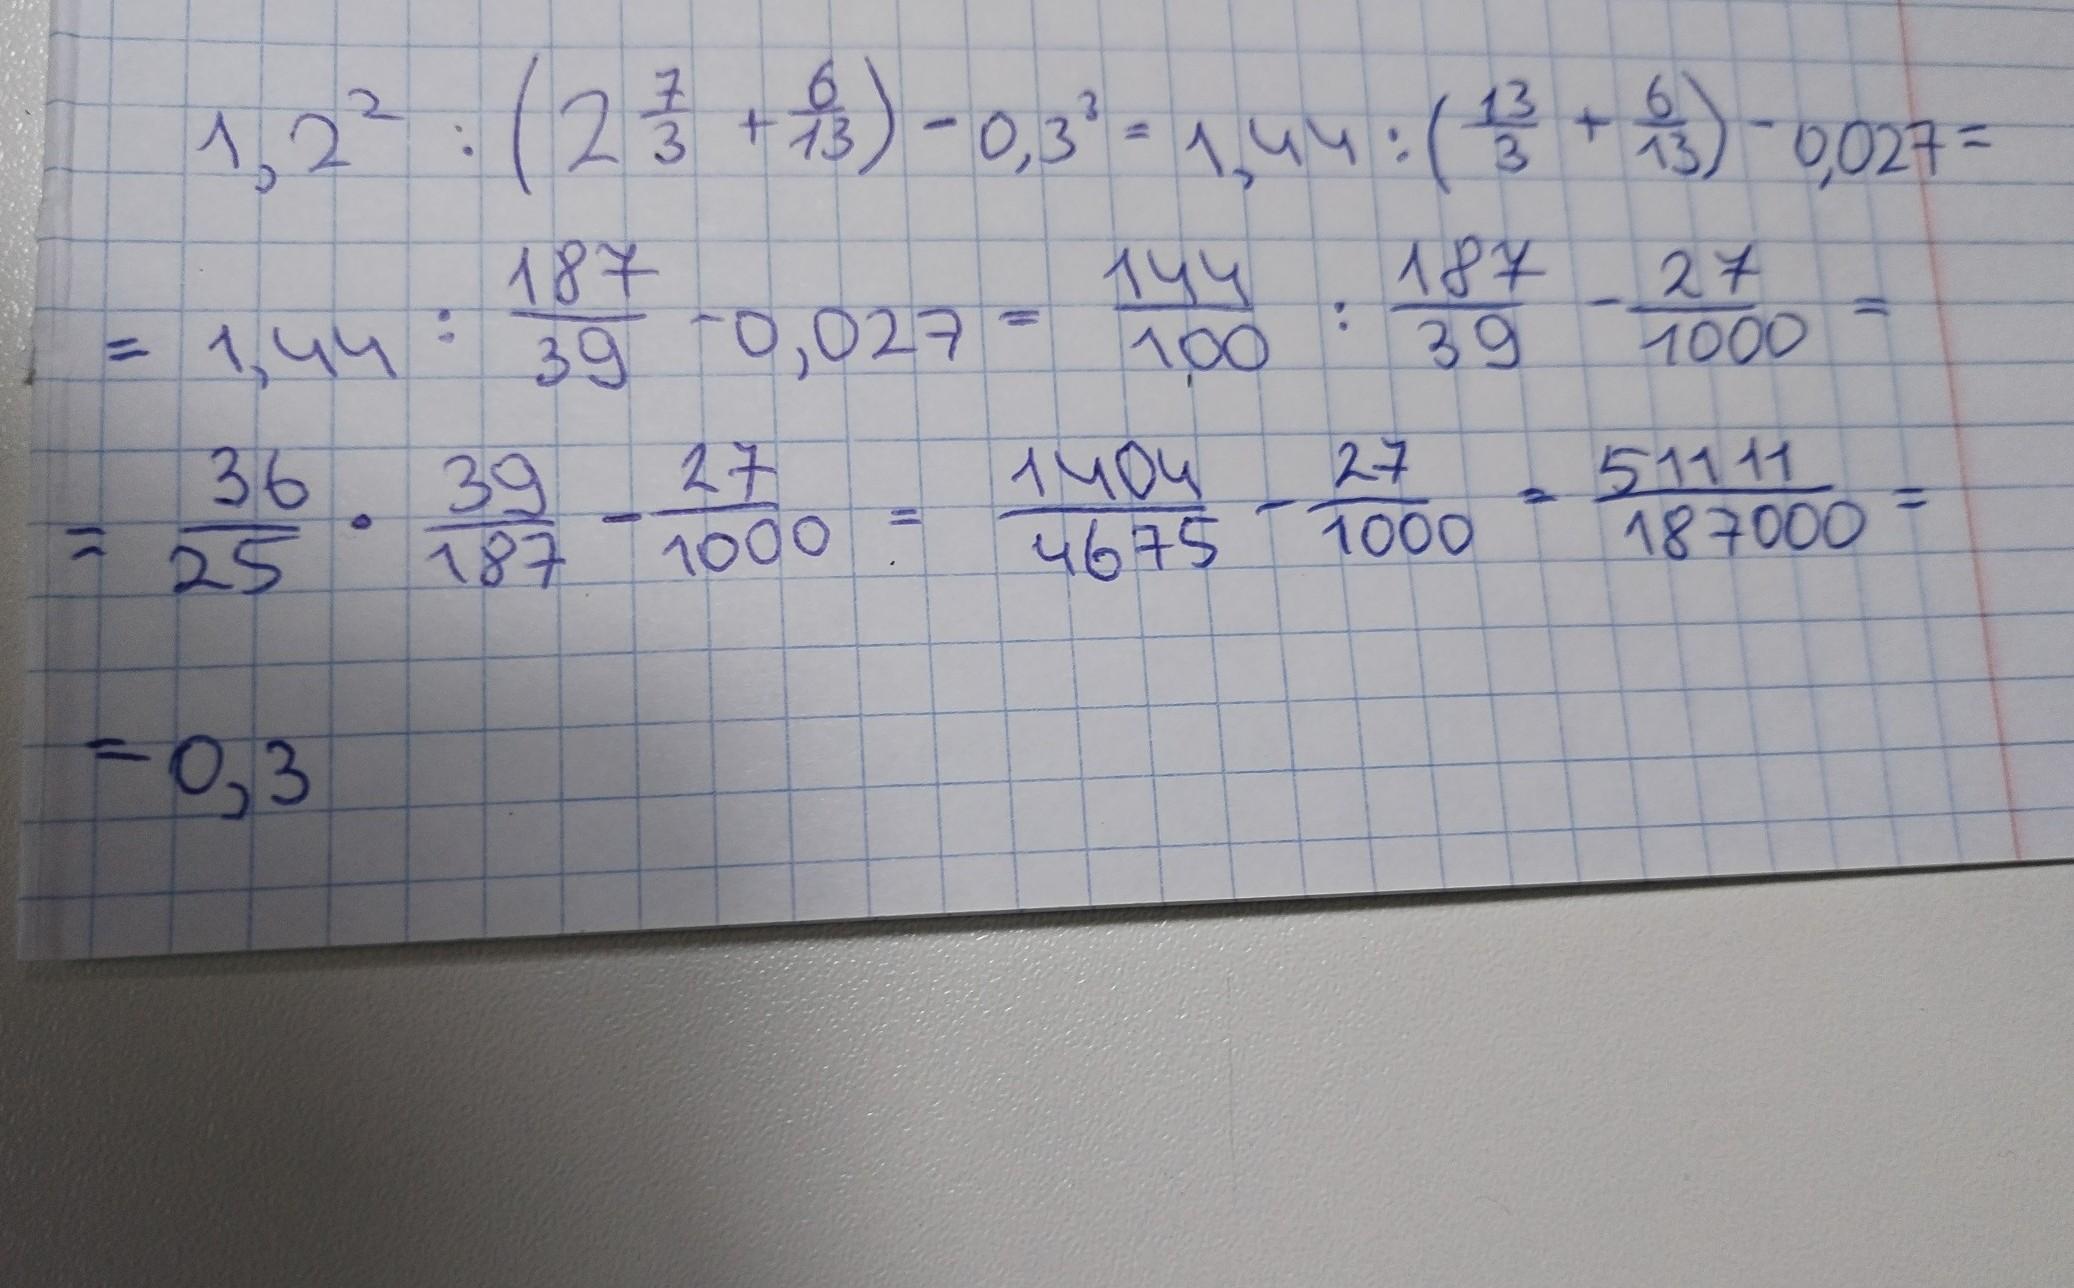 1,2² : (2 7/3 + 6/13) - 0,3³ = 1,44 : (13/3 + 6/13) - 0,027 =
= 1,44 : 187/39 - 0,027 = 144/100 : 187/39 - 27/1000 =
= 36/25 · 39/187 - 27/1000 = 1404/4675 - 27/1000 = 51111/187000 =
= 0,3